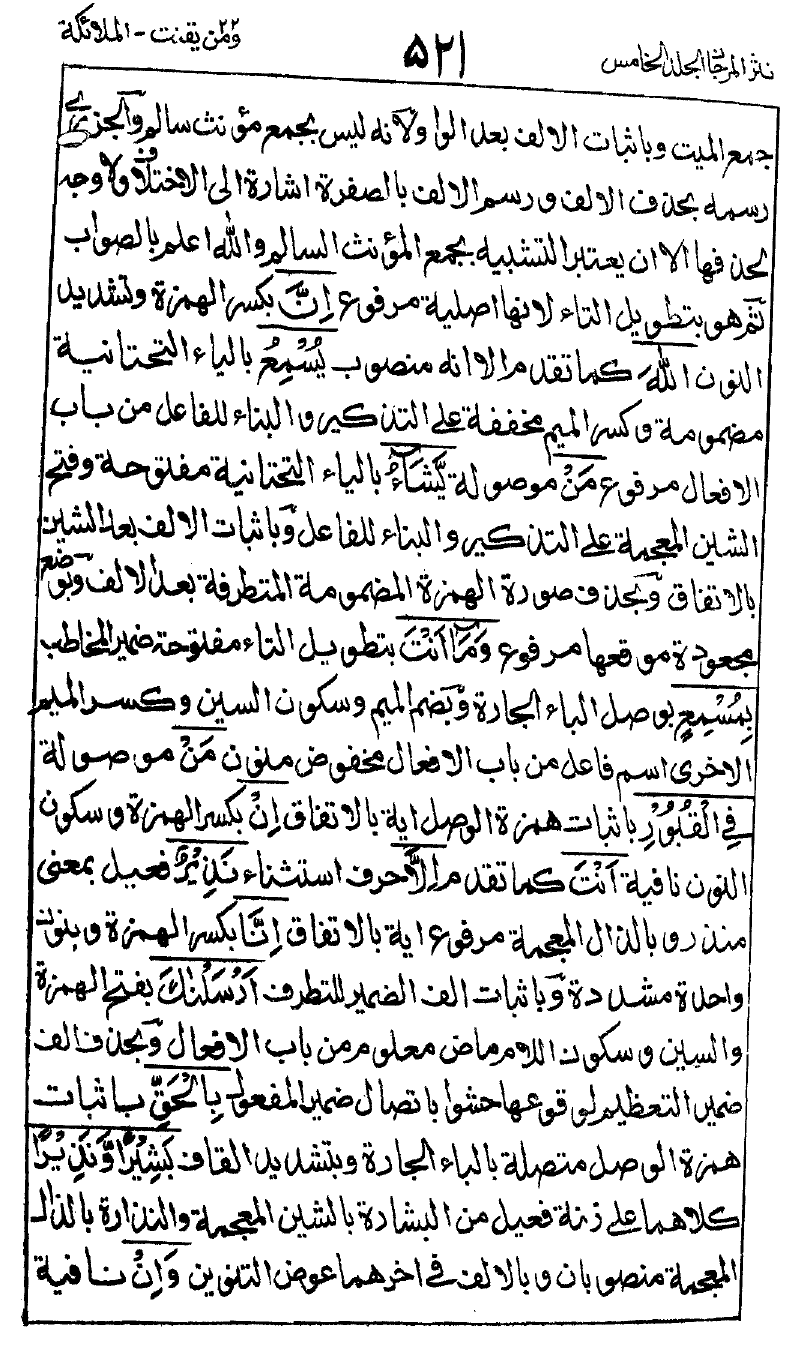 نثر المرجان الجلد الخامس
۵۲۱
۲۲ ومن يقنت - الملائكة
جمع الميت وباثبات الالف بعد الواو ولانه ليس بجمع مؤنث سالم والجزرى
رسمه بحذف الالف ورسم الالف بالصفرة اشارة الى الاختلاف ولا وجه
لحذفها الا ان يعتبر التشبيه بجمع المؤنث السالم والله اعلم بالصواب
ثم هو بتطويل التاء لانها اصلية مرفوع اِنَّ بكسر الهمزة وتشديد
النون اللّٰهَ كما تقدم الا انه منصوب يُسْمِعُ بالياء التحتانية
مضمومة وكسر الميم مخففة على التذكير والبناء للفاعل من باب
الافعال مرفوع مَنْ موصولة يَّشَآءُ بالياء التحتانية مفتوحة وفتح
الشين المعجمة على التذكير والبناء للفاعل وباثبات الالف بعد الشين
بالاتفاق وبحذف صورة الهمزة المضمومة المتطرفة بعد الالف وبوضع
مجعودة موقعها مرفوع وَمَآ اَنْتَ بتطويل التاء مفتوحة ضمير المخاطب
بِمُسْمِعٍ بوصل الباء الجارة وبضم الميم وسكون السين وكسر الميم
الاخرى اسم فاعل من باب الافعال مخفوض منون مَنْ موصولة
فِي الْقُبُوْرِ باثبات همزة الوصل اية بالاتفاق اِنْ بكسر الهمزة وسكون
النون نافية اَنْتَ كما تقدم اِلَّا حرف استثناء نَذِيْرٌ فعيل بمعنى
منذر وبالذال المعجمة مرفوع اية بالاتفاق اِنَّا بكسر الهمزة وبنون
واحدة مشددة وباثبات الف الضمير للتطرف اَرْسَلْنٰكَ بفتح الهمزة
والسين وسكون اللام ماض معلوم من باب الافعال وبحذف الف
ضمير التعظيم لوقوعها حشوا باتصال ضمير المفعول بِالْحَقِّ باثبات
همزة الوصل متصلة بالباء الجارة وبتشديد القاف بَشِيْرًا وَّنَذِيْرًا
كلاهما على زنة فعيل من البشارة بالشين المعجمة والنذارة بالذال
المعجمة منصوبان وبالالف في اخرهما عوض التنوين وَاِنْ نافية